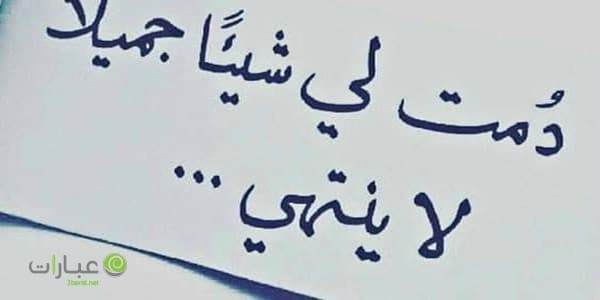 دُمت لي شيئًا جميلًا
لا ينتهي ...
عبارات
3barat.net